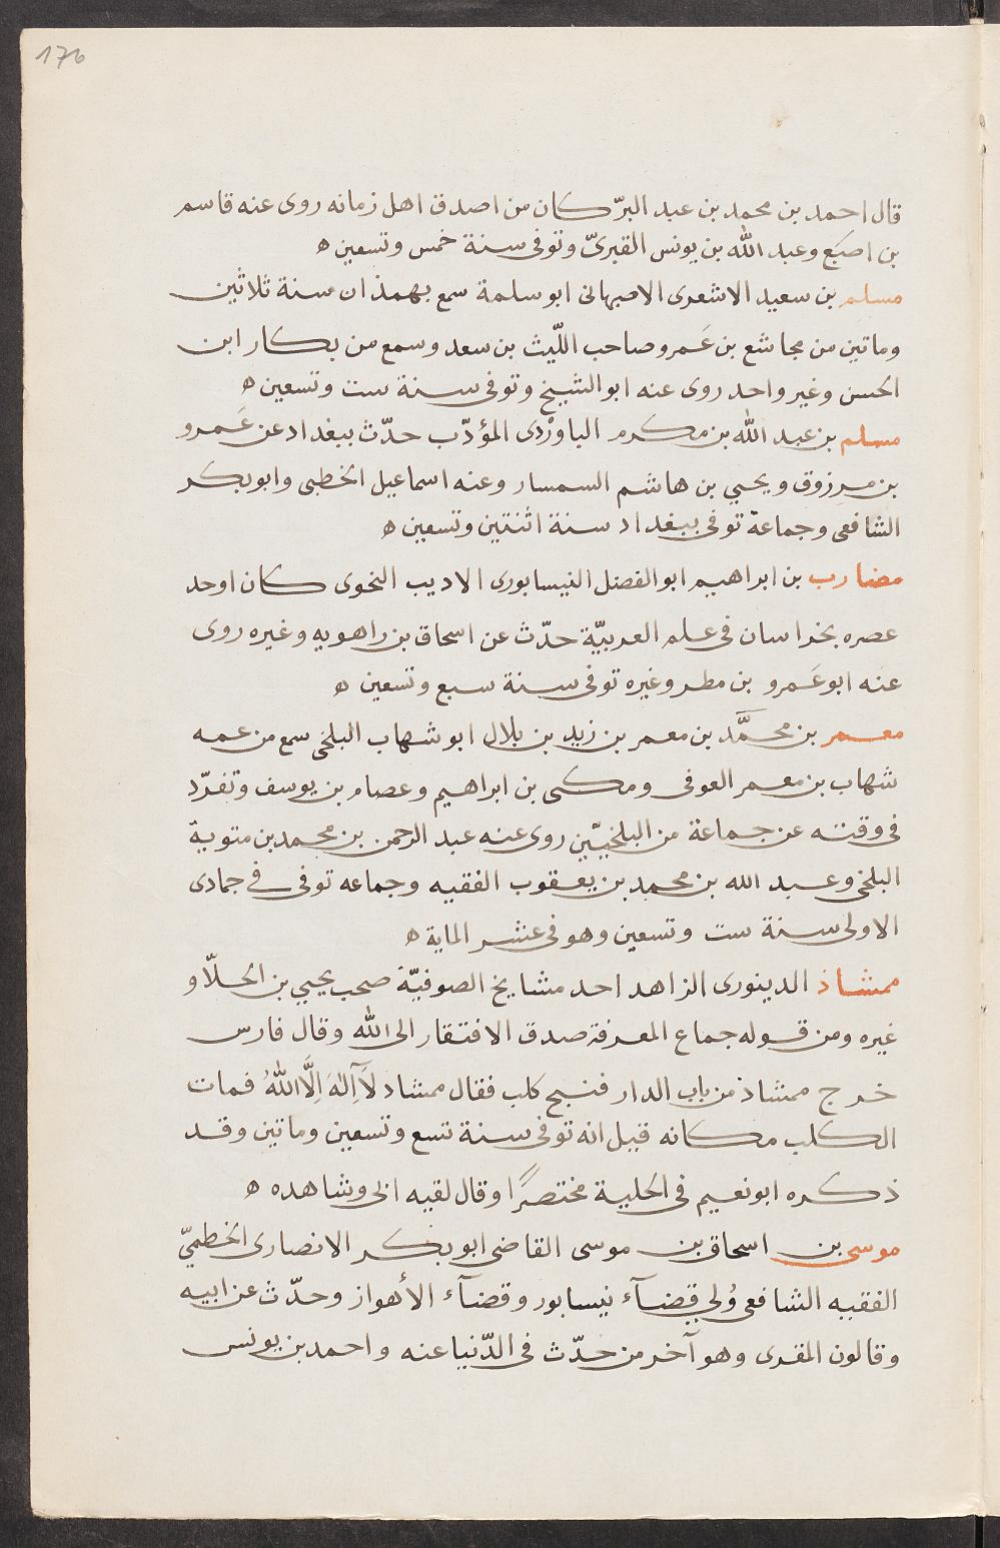 176
قال احمد بن محمد بن عبد البرّ كان من اصدق اهل زمانه روى عنه قاسم
بن اصبَع وعبد الله بن يونس القبرىّ وتوفى سنة خمس وتسعين ه
مسلم بن سعيد الاشعرى الاصبهانى ابو سلمة سمع بهمذان سنة ثلاثين
وماتين من مجاشع بن عَمرو صاحب اللّيث بن سعد وسمع من بكار ابن
الحسن وغير واحد روى عنه ابو الشيخ وتوفى سنة ست وتسعين ه
مسلم بن عبد الله بن مكرم الباوَرْدى المؤدّب حدّث ببغداد عن عَمرو
بن مرزوق ويحيي بن هاشم السمسار وعنه اسماعيل الخطبى وابو بكر
الشافعى وجماعة توفى ببغداد سنة اثنتين وتسعين ه
مضارب بن ابراهيم ابو الفضل النيسابورى الاديب النحوى كان اوحد
عصره بخراسان فى علم العربيّة حدّث عن اسحاق بن راهويه وغيره روى
عنه ابو عَمرو بن مطر وغيره توفى سنة سبع وتسعين ه
معمر بن محمَّد بن معمر بن زيد بن بلال ابو شهاب البلخى سمع من عمه
شهاب بن معمر العوفى ومكى بن ابراهيم وعصام بن يوسف وتفرّد
فى وقته عن جماعة من البلخيّين روى عنه عبد الرحمن بن محمد بن متوية
البلخى وعبد الله بن محمد بن يعقوب الفقيه وجماعه توفى فى جمادى
الاولى سنة ست وتسعين وهو فى عشر الماية ه
ممشاذ الدينورى الزاهد احد مشايخ الصوفيّة صحب يحيي بن الجلّا و
غيره ومن قوله جماع المعرفة صدق الافتقار الى الله وقال فارس
خرج ممشاذ من باب الدار فنبح كلب فقال ممشاد لَآ اِلٰهَ اِلَّا اللّٰهُ فمات
الكلب مكانه قيل انه توفى سنة تسع وتسعين وماتين وقد
ذكره ابو نعيم فى الحلية مختصرًا وقال لقيه ابى وشاهده ه
موسى بن اسحاق بن موسى القاضى ابو بكر الانصارى الخطمىّ
الفقيه الشافعى وُلى قضآء نيسابور وقضآء الأهواز وحدّث عن ابيه
وقالون المقرى وهو آخر من حدّث فى الدّنيا عنه واحمد بن يونس